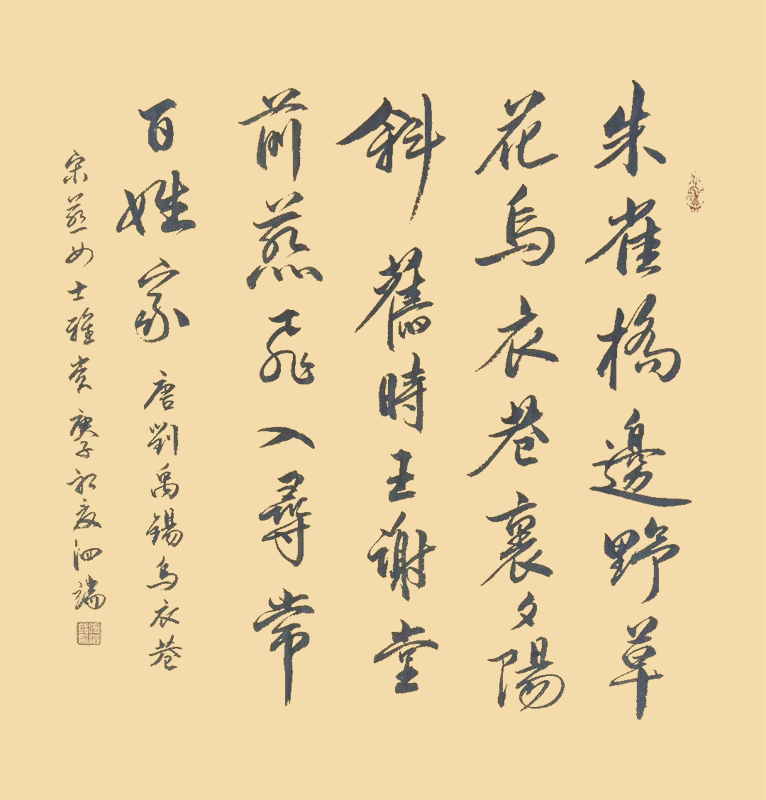 朱雀橋邊野草
花烏衣巷裏夕陽
斜舊時王謝堂
前燕飛入尋常
百姓家 唐劉禹錫烏衣巷
宋燕女士雅賞 庚子初夏 泗端